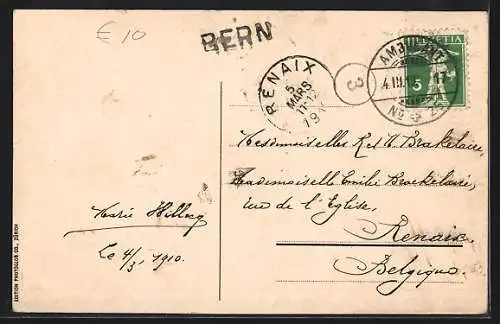 € 10
BERN
RENAIX
5
MARS
17-12
191
3
AMBULANT
4.III.1
No 2
HELVETIA
5
Mesdemoiselles R et M Brakelaire,
Mademoiselle Emilie Braekelaire,
rue de l'Eglise,
Renaix
Belgique.
Marie
Le 4/3, 1910.
EDITION PHOTOGLOB CO., ZÜRICH